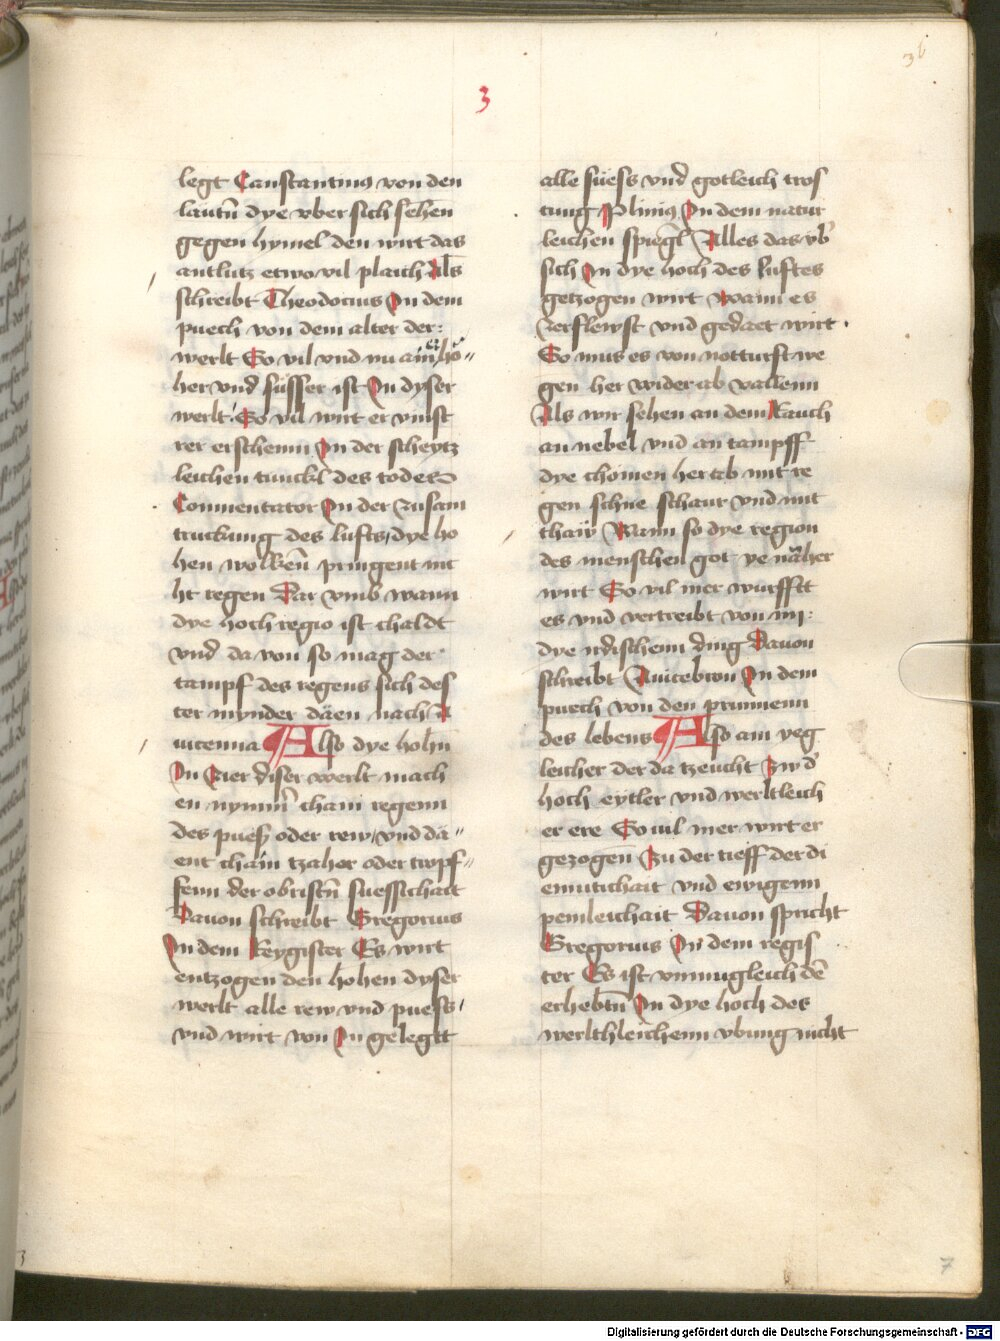 36
3
legt Canstantinus von den
läutn̄ dye vber sich sehen̄
gegen hymel den wirt das
antlütz etwo vil plaich Als
schreibt Theodocius In dem
puech von dem alter der
werlt So vil vnd nu ainer hö
her vnd süsser ist In dyser
werlt So vil wirt er vinst
rer erscheinn In der scheytz
leichen tunckl̄ des todes
Commentator In der zusam
truckung des lufts dye ho
hen wolken̄ pringent nit
ht regen Dar vmb wann
dye hoch regio ist chaldt
vnd da von so mag der
tampf des regens sich des
ter mynder däen nach A
uicenna Also dye hohn̄
In Irer diser werlt mach
en nymm̄ chain regenn
des puess oder rew vnd dä
ent chain tzaher oder tropf
fenn der obristn̄ suessichait
Dauon schreibt Gregorius
In dem Reygister Es wirt
entzogen den hohen dyser
werlt alle rew vnd puess
vnd wirt von In gelegtt
alle süess vnd gotleich tros
tung Plinius In dem natur
leichen spiegl̄ Alles das vb̄
sich In dye hoch des luftes
getzogen wirt wann es
zerflewst vnd gedaet wirt
So mus es von notturft we
gen her wider ab vallenn
Als wir sehen an dem Rauch
an nebel vnd an tampff
dye chomen her ab mit re
gen schne schaur vnd mit
thaw Wann so dye region
des menschen got ye näher
wirt So vil mer wurfftt
es vnd vertreibt von im
dye irdischenn ding Dauon
schreibt Auicebron In dem
puech von den prunnenn
des lebens Also ain yeg
leicher der da tzeucht Zw d̄
hoch eytler vnd werltleich
er ere So uil mer wirt er
gezogen Zu der tieff der di
emutichait vnd ewigenn
peinleichait Dauon spricht
Gregorius In dem regis
ter Es ist vnmugleich de̅
erhebtn̄ In dye hoch des
werlthleichenn vbung nicht
3
7
Digitalisierung gefördert durch die Deutsche Forschungsgemeinschaft - DFG